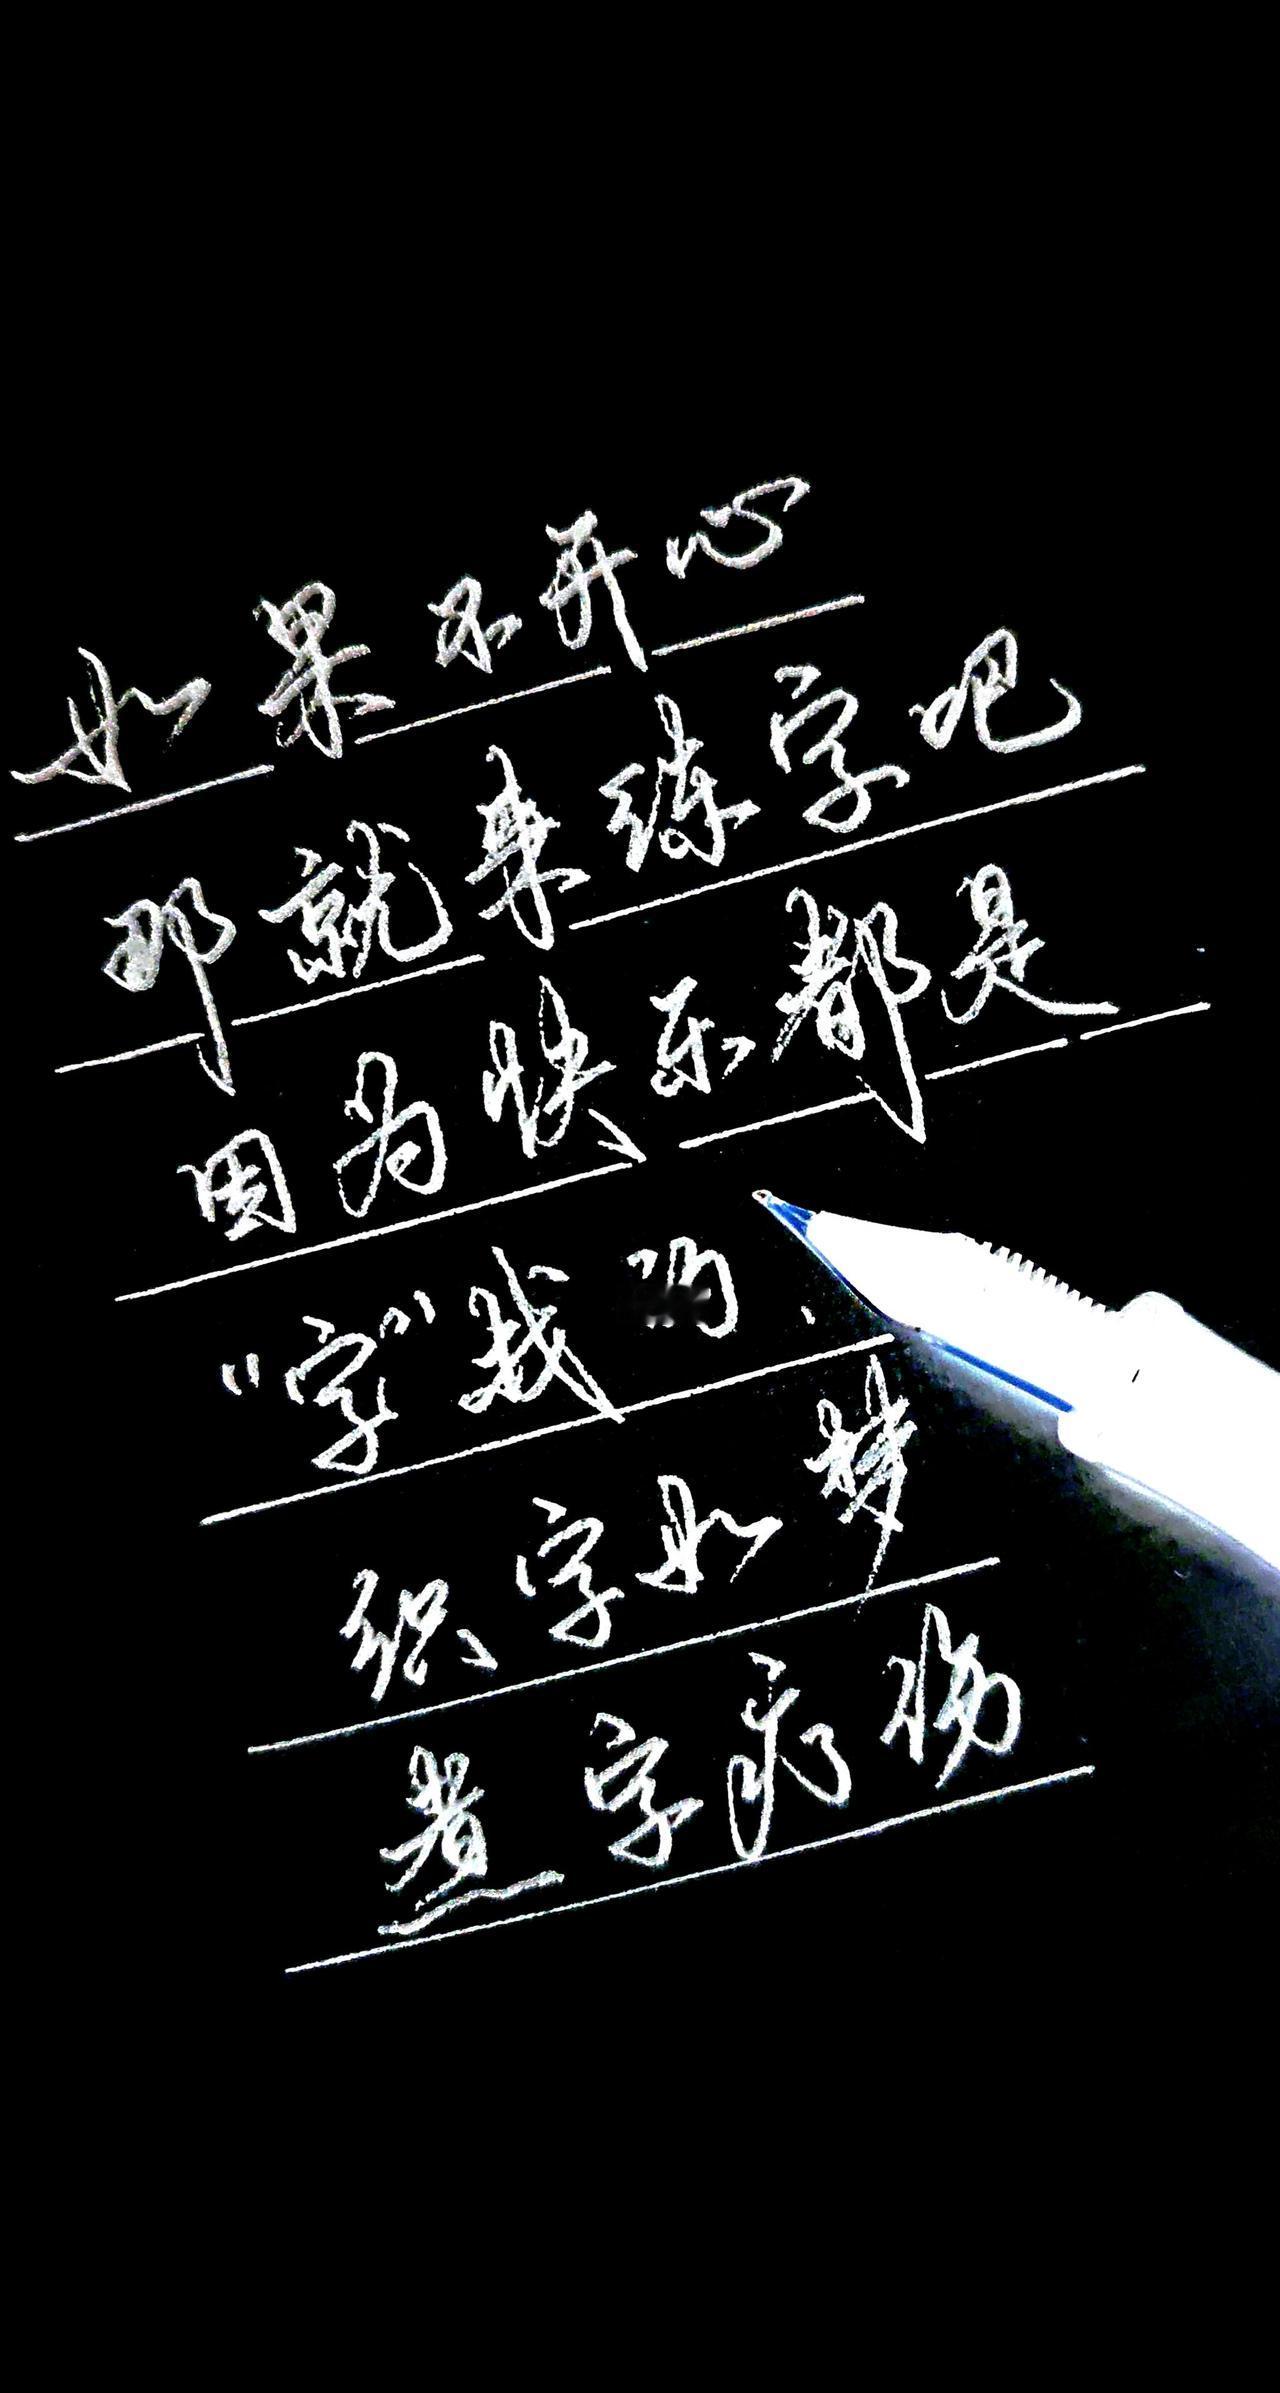 如果不开心
那就来练字吧
因为快乐都是
“字”找的.
织字如梦
煮字疗伤